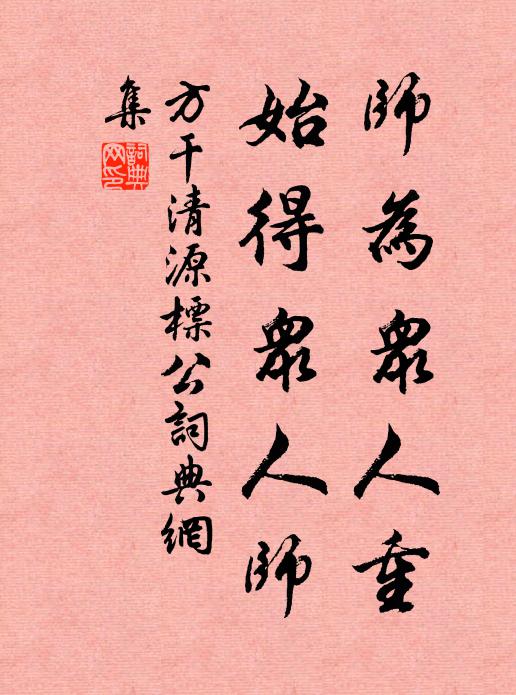 師為眾人重
始得眾人師
方干清源標公詞典網
集
詞典
网印